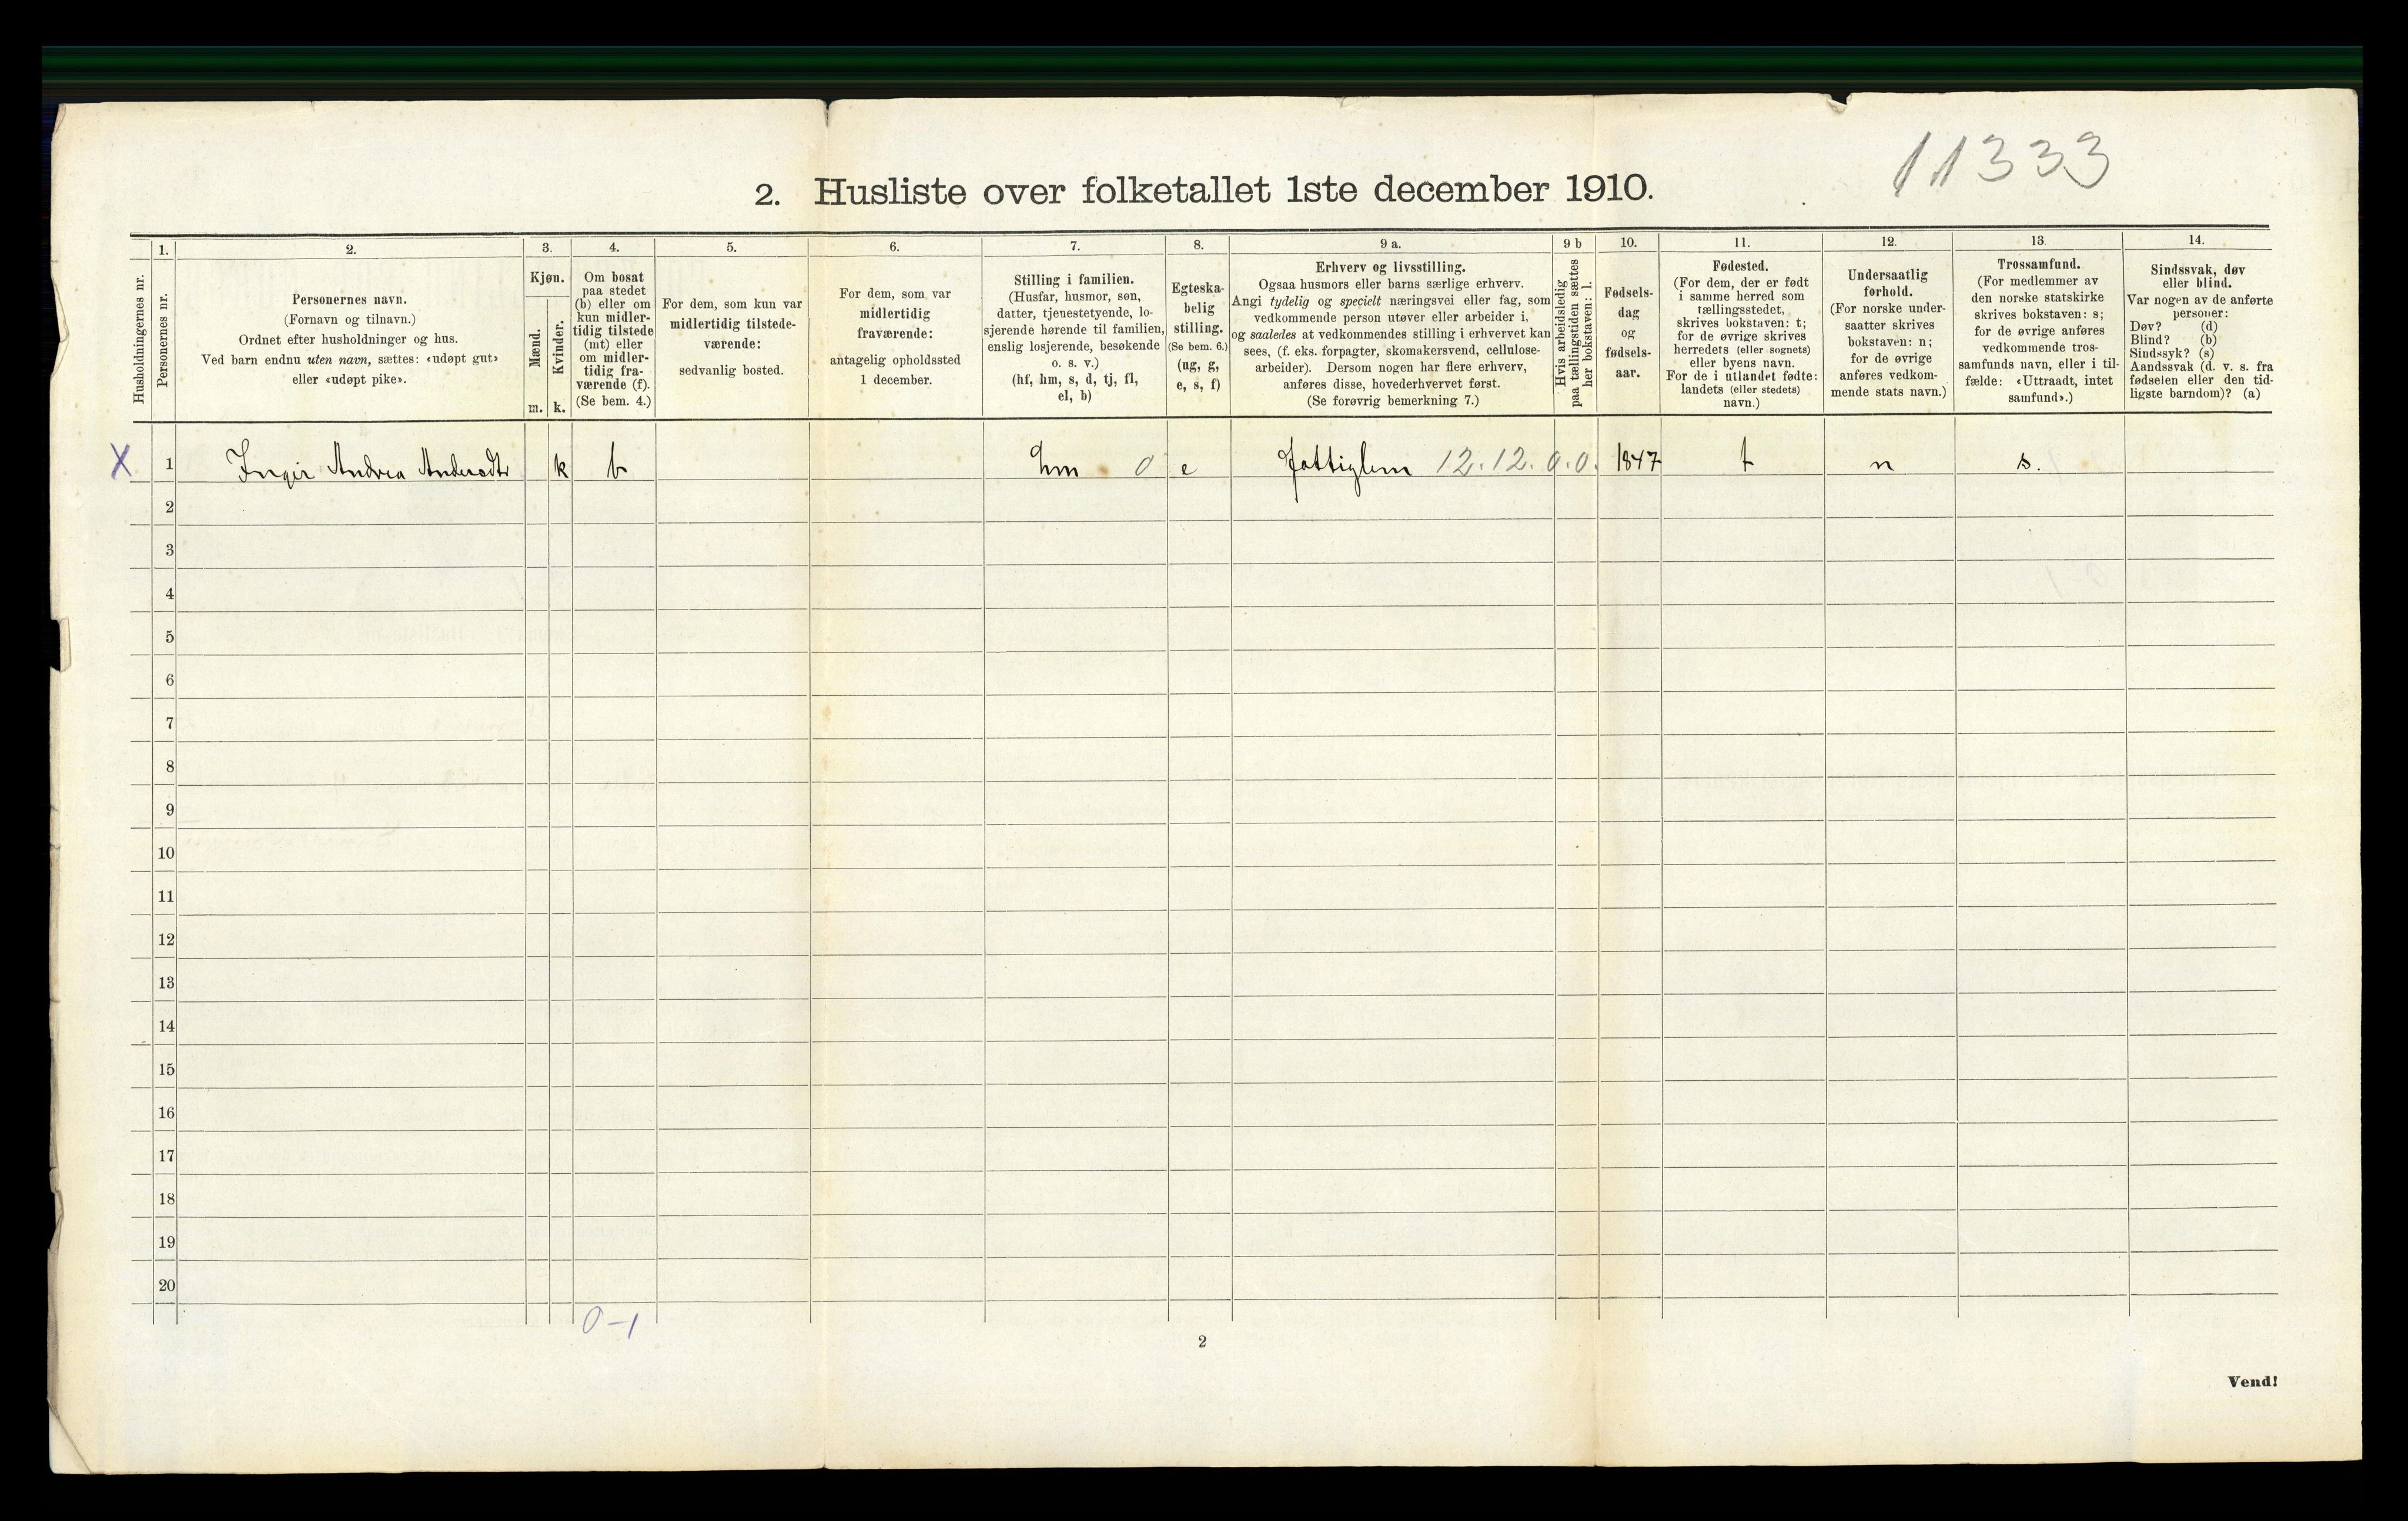 11333
2. Husliste over folketallet 1ste december 1910.
Husholdningernes nr.
1.
Personernes nr.
2.
Personernes navn.
(Fornavn og tilnavn.)
Ordnet efter husholdninger og hus.
Ved barn endnu uten navn, sættes: «udøpt gut»
eller «udøpt pike».
3.
Kjøn.
Mænd.
Kvinder.
m.
k.
4.
Om bosat
paa stedet
(b) eller om
kun midler-
tidig tilstede
(mt) eller
om midler-
tidig fra-
værende (f).
(Se bem. 4.)
5.
For dem, som kun var
midlertidig tilstede-
værende:
sedvanlig bosted.
6.
For dem, som var
midlertidig
fraværende:
antagelig opholdssted
1 december.
7.
Stilling i familien.
(Husfar, husmor, søn,
datter, tjenestetyende, lo-
sjerende hørende til familien,
enslig losjerende, besøkende
o. s. v.)
(hf, hm, s, d, tj, fl,
el, b)
8.
Egteska-
belig
stilling.
(Se bem. 6.)
(ug, g,
e, s, f)
9 a.
Erhverv og livsstilling.
Ogsaa husmors eller barns særlige erhverv.
Angi tydelig og specielt næringsvei eller fag, som
vedkommende person utøver eller arbeider i,
og saaledes at vedkommendes stilling i erhvervet kan
sees, (f. eks. forpagter, skomakersvend, cellulose-
arbeider). Dersom nogen har flere erhverv,
anføres disse, hovederhvervet først.
(Se forøvrig bemerkning 7.)
9 b
Hvis arbeidsledig
paa tællingstiden sættes
her bokstaven: l.
10.
Fødsels-
dag
og
fødsels-
aar.
11.
Fødested.
(For dem, der er født
i samme herred som
tællingsstedet,
skrives bokstaven: t;
for de øvrige skrives
herredets (eller sognets)
eller byens navn.
For de i utlandet fødte:
landets (eller stedets)
navn.)
12.
Undersaatlig
forhold.
(For norske under-
saatter skrives
bokstaven: n;
for de øvrige
anføres vedkom-
mende stats navn.)
13.
Trossamfund.
(For medlemmer av
den norske statskirke
skrives bokstaven: s;
for de øvrige anføres
vedkommende tros-
samfunds navn, eller i til-
fælde: «Uttraadt, intet
samfund».)
14.
Sindssvak, døv
eller blind.
Var nogen av de anførte
personer:
Døv? (d)
Blind? (b)
Sindssyk? (s)
Aandssvak (d. v. s. fra
fødselen eller den tid-
ligste barndom)? (a)
X 1 Andrea k b hm 0 e 12.12.0.0. 1847 t n s.
2
3
4
5
6
7
8
9
10
11
12
13
14
15
16
17
18
19
20
0-1
2
Vend!